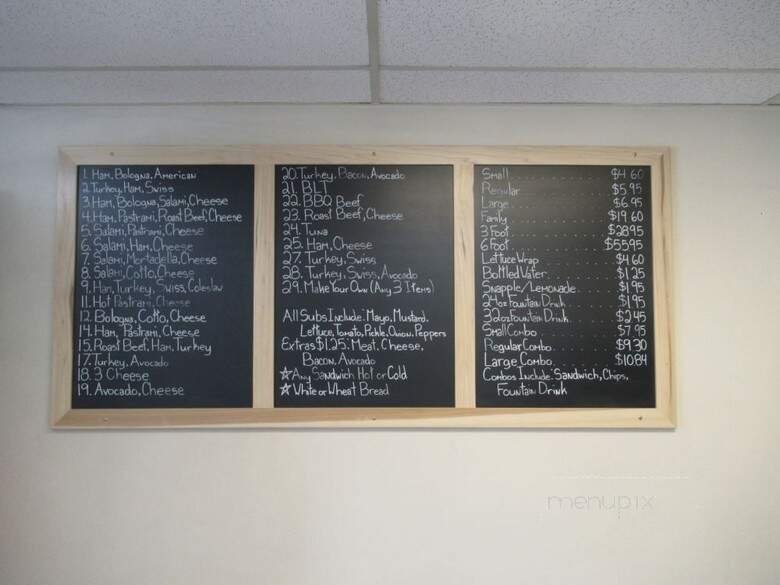 1. Ham, Bologna, American
2. Turkey, Ham, Swiss
3. Ham, Bologna, Salami, Cheese
4. Ham, Pastrami, Roast Beef, Cheese
5. Salami, Pastrami, Cheese
6. Salami, Ham, Cheese
7. Salami, Mortadella, Cheese
8. Salami, Cotto, Cheese
9. Ham, Turkey, Swiss, Coleslaw
11. Hot Pastrami, Cheese
12. Bologna, Cotto, Cheese
14. Ham, Pastrami, Cheese
15. Roast Beef, Ham, Turkey
17. Turkey, Avocado
18. 3 Cheese
19. Avocado, Cheese
20. Turkey, Bacon, Avocado
21. BLT
22. BBQ Beef
23. Roast Beef, Cheese
24. Tuna
25. Ham, Cheese
27. Turkey, Swiss
28. Turkey, Swiss, Avocado
29. Make Your Own (Any 3 Items)
All Subs Include: Mayo, Mustard,
Lettuce, Tomato, Pickle, Onion, Peppers
Extras $1.25: Meat, Cheese,
Bacon, Avocado
☆Any Sandwich Hot or Cold
☆White or Wheat Bread
Small $4.60
Regular $5.95
Large $6.95
Family $19.60
3 Foot $28.95
6 Foot $55.95
Lettuce Wrap $4.60
Bottled Water $1.25
Snapple/Lemonade $1.95
24oz Fountain Drink $1.95
32oz Fountain Drink $2.45
Small Combo $7.95
Regular Combo $9.30
Large Combo $10.84
Combos Include: Sandwich, Chips,
Fountain Drink
menupix